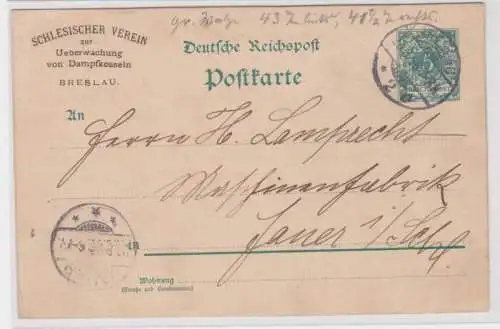 SCHLESISCHER VEREIN
zur
Ueberwachung
von Dampfkesseln
BRESLAU.
Deutsche Reichspost
Postkarte
An
Herrn H. Lamprecht
Maschinenfabrik
in Jauer i/Schl.
Wohnung
(Straße und Hausnummer)